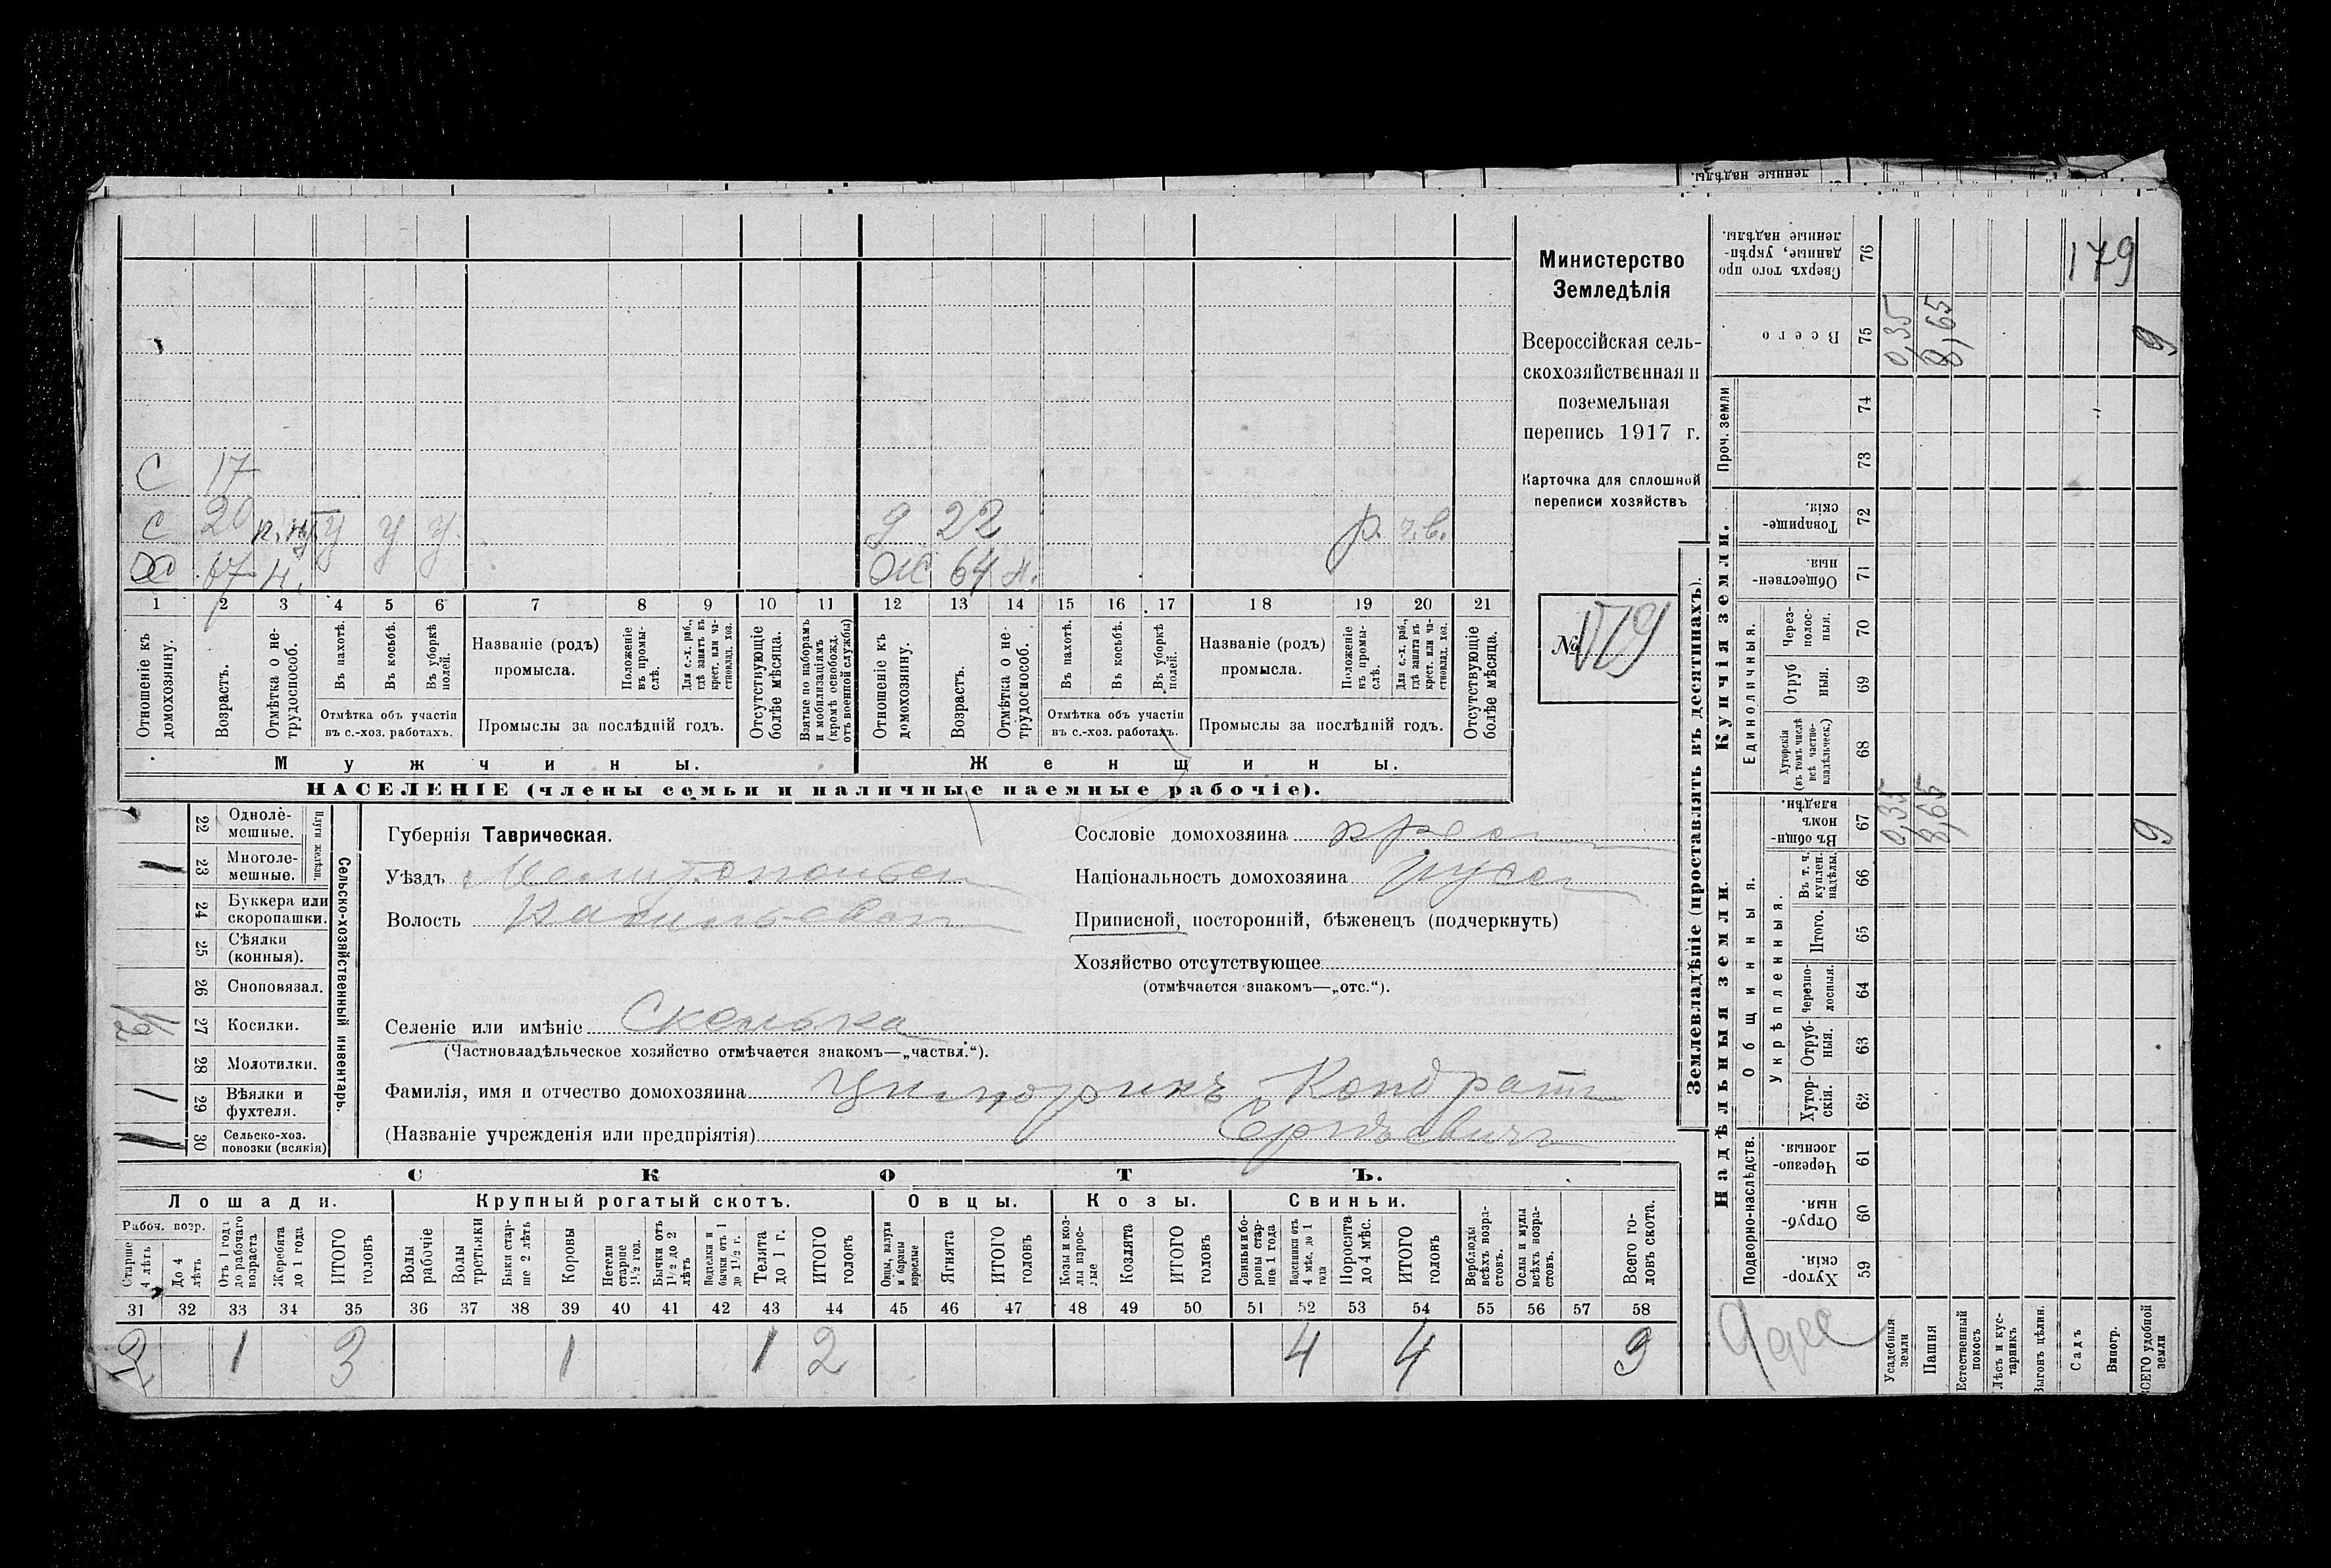 ленные надѣлы.
Министерство
Земледѣлія
Всероссійская сель-
скохозяйственная и
поземельная
перепись 1917 г.
Карточка для сплошной
переписи хозяйствъ
№ 179
С 17
С 20 у у у. д 22 р. ч.в.
67 н. Ж 64 н.
1 2 3 4 5 6 7 8 9 10 11 12 13 14 15 16 17 18 19 20 21
Отношеніе къ домохозяину.
Возрастъ.
Отмѣтка о не-трудоспособ.
Въ пахотѣ.
Въ косьбѣ.
Въ уборкѣ полей.
Отмѣтка объ участіи
въ с.-хоз. работахъ.
Названіе (родъ)
промысла.
Положеніе въ промы-слѣ.
Для с.-х. раб., гдѣ занятъ въ крест. или ча-стновлад. хоз.
Промыслы за послѣдній годъ.
Отсутствующіе болѣе мѣсяца.
Взятые по наборамъ и мобилизаціямъ (кромѣ освобожд. отъ военной службы)
Отношеніе къ домохозяину.
Возрастъ.
Отмѣтка о не-трудоспособ.
Въ пахотѣ.
Въ косьбѣ.
Въ уборкѣ полей.
Отмѣтка объ участіи
въ с.-хоз. работахъ.
Названіе (родъ)
промысла.
Положеніе въ промы-слѣ.
Для с.-х. раб., гдѣ занята въ крест. или ча-стновлад. хоз.
Промыслы за послѣдній годъ.
Отсутствующіе болѣе мѣсяца.
Мужчины. Женщины.
НАСЕЛЕНІЕ (члены семьи и наличные наемные рабочіе).
Сельско-хозяйственный инвентарь.
Плуги желѣзн.
22 Одноле-мешные.
1 23 Многоле-мешные.
24 Буккера или скоропашки.
25 Сѣялки (конныя).
26 Сноповязал.
1/2 27 Косилки.
28 Молотилки.
1 29 Вѣялки и фухтеля.
1 30 Сельско-хоз. повозки (всякія)
Губернія Таврическая.
Уѣздъ Мелитопольск
Волость Васильевск
Селеніе или имѣніе Скелька
(Частновладѣльческое хозяйство отмѣчается знакомъ—„частвл.“).
Фамилія, имя и отчество домохозяина Кондратъ
(Названіе учрежденія или предпріятія) Сергѣевичъ
Сословіе домохозяина крест
Національность домохозяина русск
Приписной, посторонній, бѣженецъ (подчеркнуть)
Хозяйство отсутствующее
(отмѣчается знакомъ—„отс.“).
СКОТЪ.
Лошади. Крупный рогатый скотъ. Овцы. Козы. Свиньи.
Рабоч. возр.
Старше 4 лѣтъ
До 4 лѣтъ
Отъ 1 года до рабочаго возраста
Жеребята до 1 года
ИТОГО головъ
Волы рабочіе
Волы третьяки
Быки стар-ше 2 лѣтъ
Коровы
Нетели старше 1½ год.
Бычки отъ 1½ до 2 лѣтъ
Подтелки и бычки отъ 1 до 1½ г.
Телята до 1 г.
ИТОГО головъ
Овцы, валухи и бараны взрослые
Ягнята
ИТОГО головъ
Козы и коз-лы взрос-лые
Козлята
ИТОГО головъ
Свиньи и бо-ровы стар-ше 1 года
Подсвинки отъ 4 мѣс. до 1 года
Поросята до 4 мѣс.
ИТОГО головъ
Верблюды всѣхъ возра-стовъ.
Ослы и мулы всѣхъ возра-стовъ.
Всего го-ловъ скота.
31 32 33 34 35 36 37 38 39 40 41 42 43 44 45 46 47 48 49 50 51 52 53 54 55 56 57 58
2 1 3 1 1 2 4 4 9
Землевладѣніе (проставлять въ десятинахъ).
Надѣльныя земли. Купчія земли. Проч. земли
Подворно-наслѣдств.
Общинныя.
Укрѣпленныя.
Единоличныя.
59 Хутор-скія.
60 Отруб-ныя.
61 Черезпо-лосныя.
62 Хутор-скія.
63 Отруб-ныя.
64 Черезпо-лосныя.
65 Итого.
66 Въ т. ч. куплен. надѣлы.
67 Въ общин-номъ владѣн.
68 Хуторскія (въ томъ числѣ всѣ частно-владѣльческ.)
69 Отруб ныя.
70 Через-полос-ныя.
71 Обществен-ныя.
72 Товарище-скія.
73
74
75 Всего
76 Сверхъ того про данные, укрѣп-ленные надѣлы.
179
0,35 8,65 9
0,35 8,65 9
Усадебныя земли
Пашня
Естественный покосъ
Лѣсъ и кус-тарникъ
Выгонъ цѣлин.
Садъ
Виногр.
ВСЕГО удобной земли